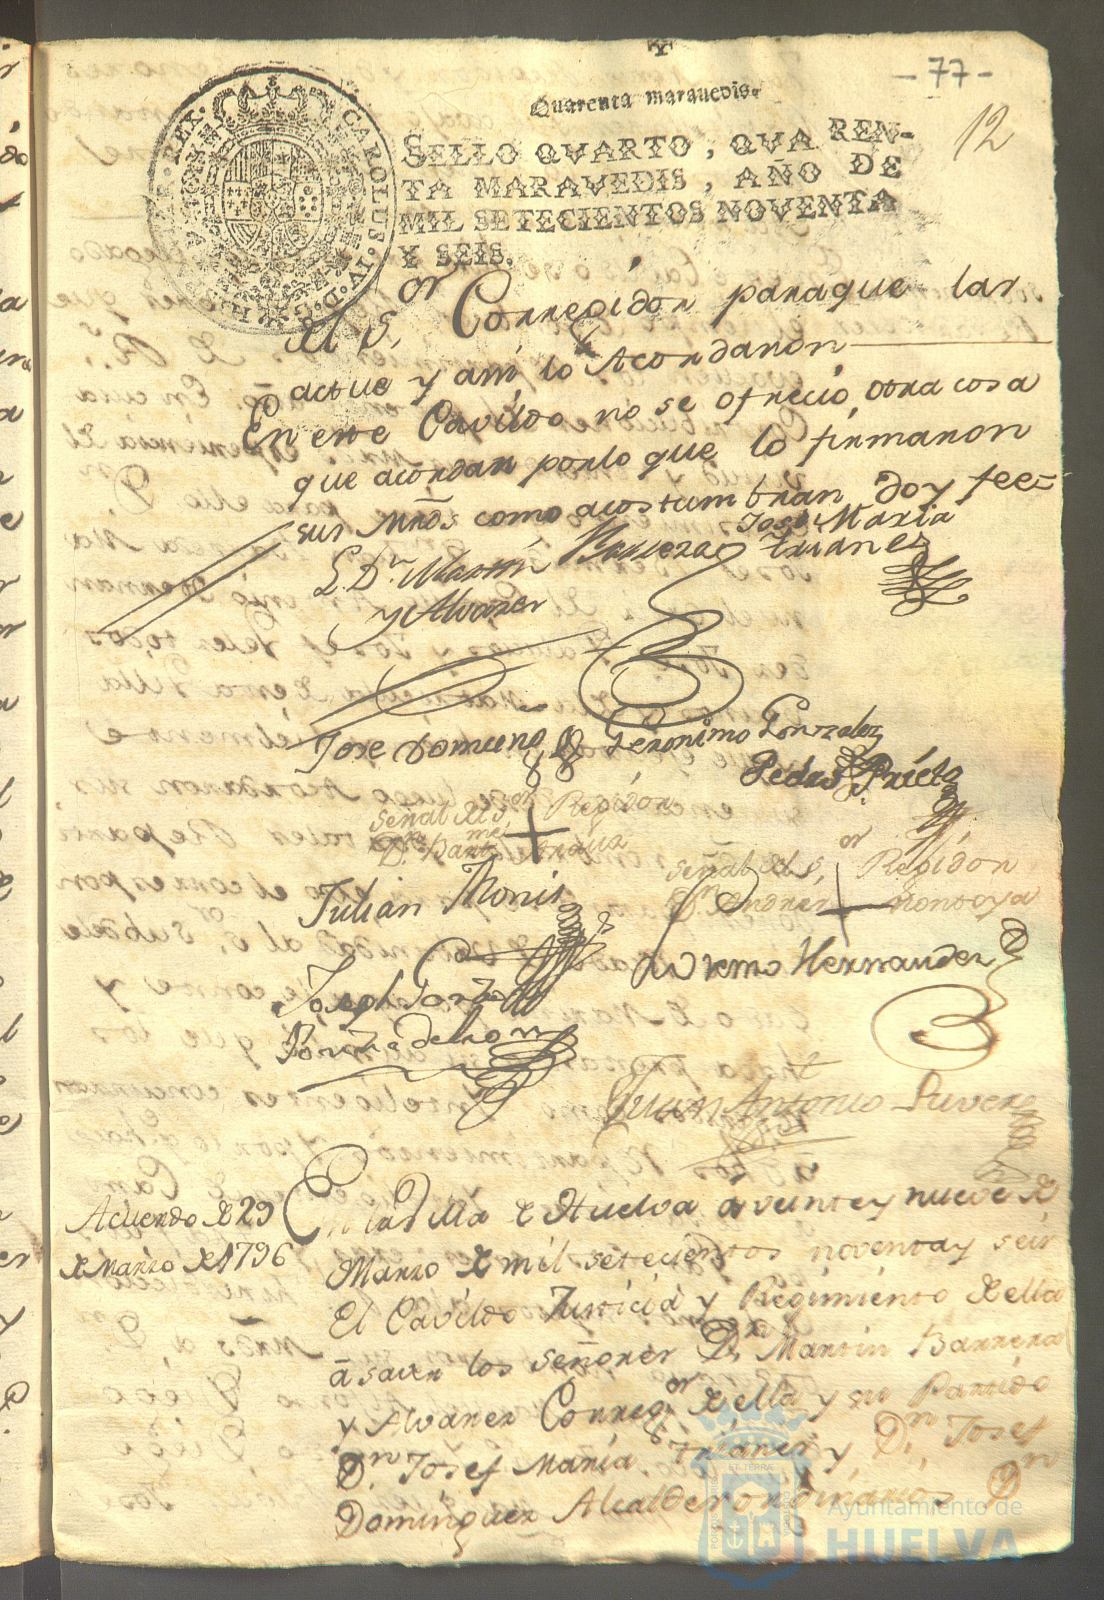 - 77 -
12
Quarenta maravedis.
SELLO QVARTO, QVAREN-
TA MARAVEDIS, AÑO DE
MIL SETECIENTOS NOVENTA
Y SEIS.
CAROLUS IV D G
REX
el S.or Corregidor paraque las
actue y asi lo Acordaron
En este Cavildo no se ofrecio otra cosa
que acordar porlo que lo firmaron
sus Mrds como acostumbran doy fee=
L. Dn. Martin Barrera
y Alvarez
Josef Maria
Trianes
Jose Domin
Geronimo Gonzalez
Pedro Prieto
Señal del s.or Regidor
Dn. Bartme
señal del s.or Regidor
Dn Andres Montoya
Julian Monis
Hernandez
Joseph
Juan Antonio
Acuerdo de 29
de Marzo de 1796
En la Villa de Huelva a veinte y nueve de
Marzo de mil setecientos noventa y seis
El Cavildo Justicia y Regimiento de ella
a saver los señores Dn. Martin Barrera
y Alvarez Correg.or de ella y su Partido
Dn. Josef Maria Trianes y Dn. Josef
Dominguez Alcaldes ordinarios Dn
Ayuntamiento de
HUELVA